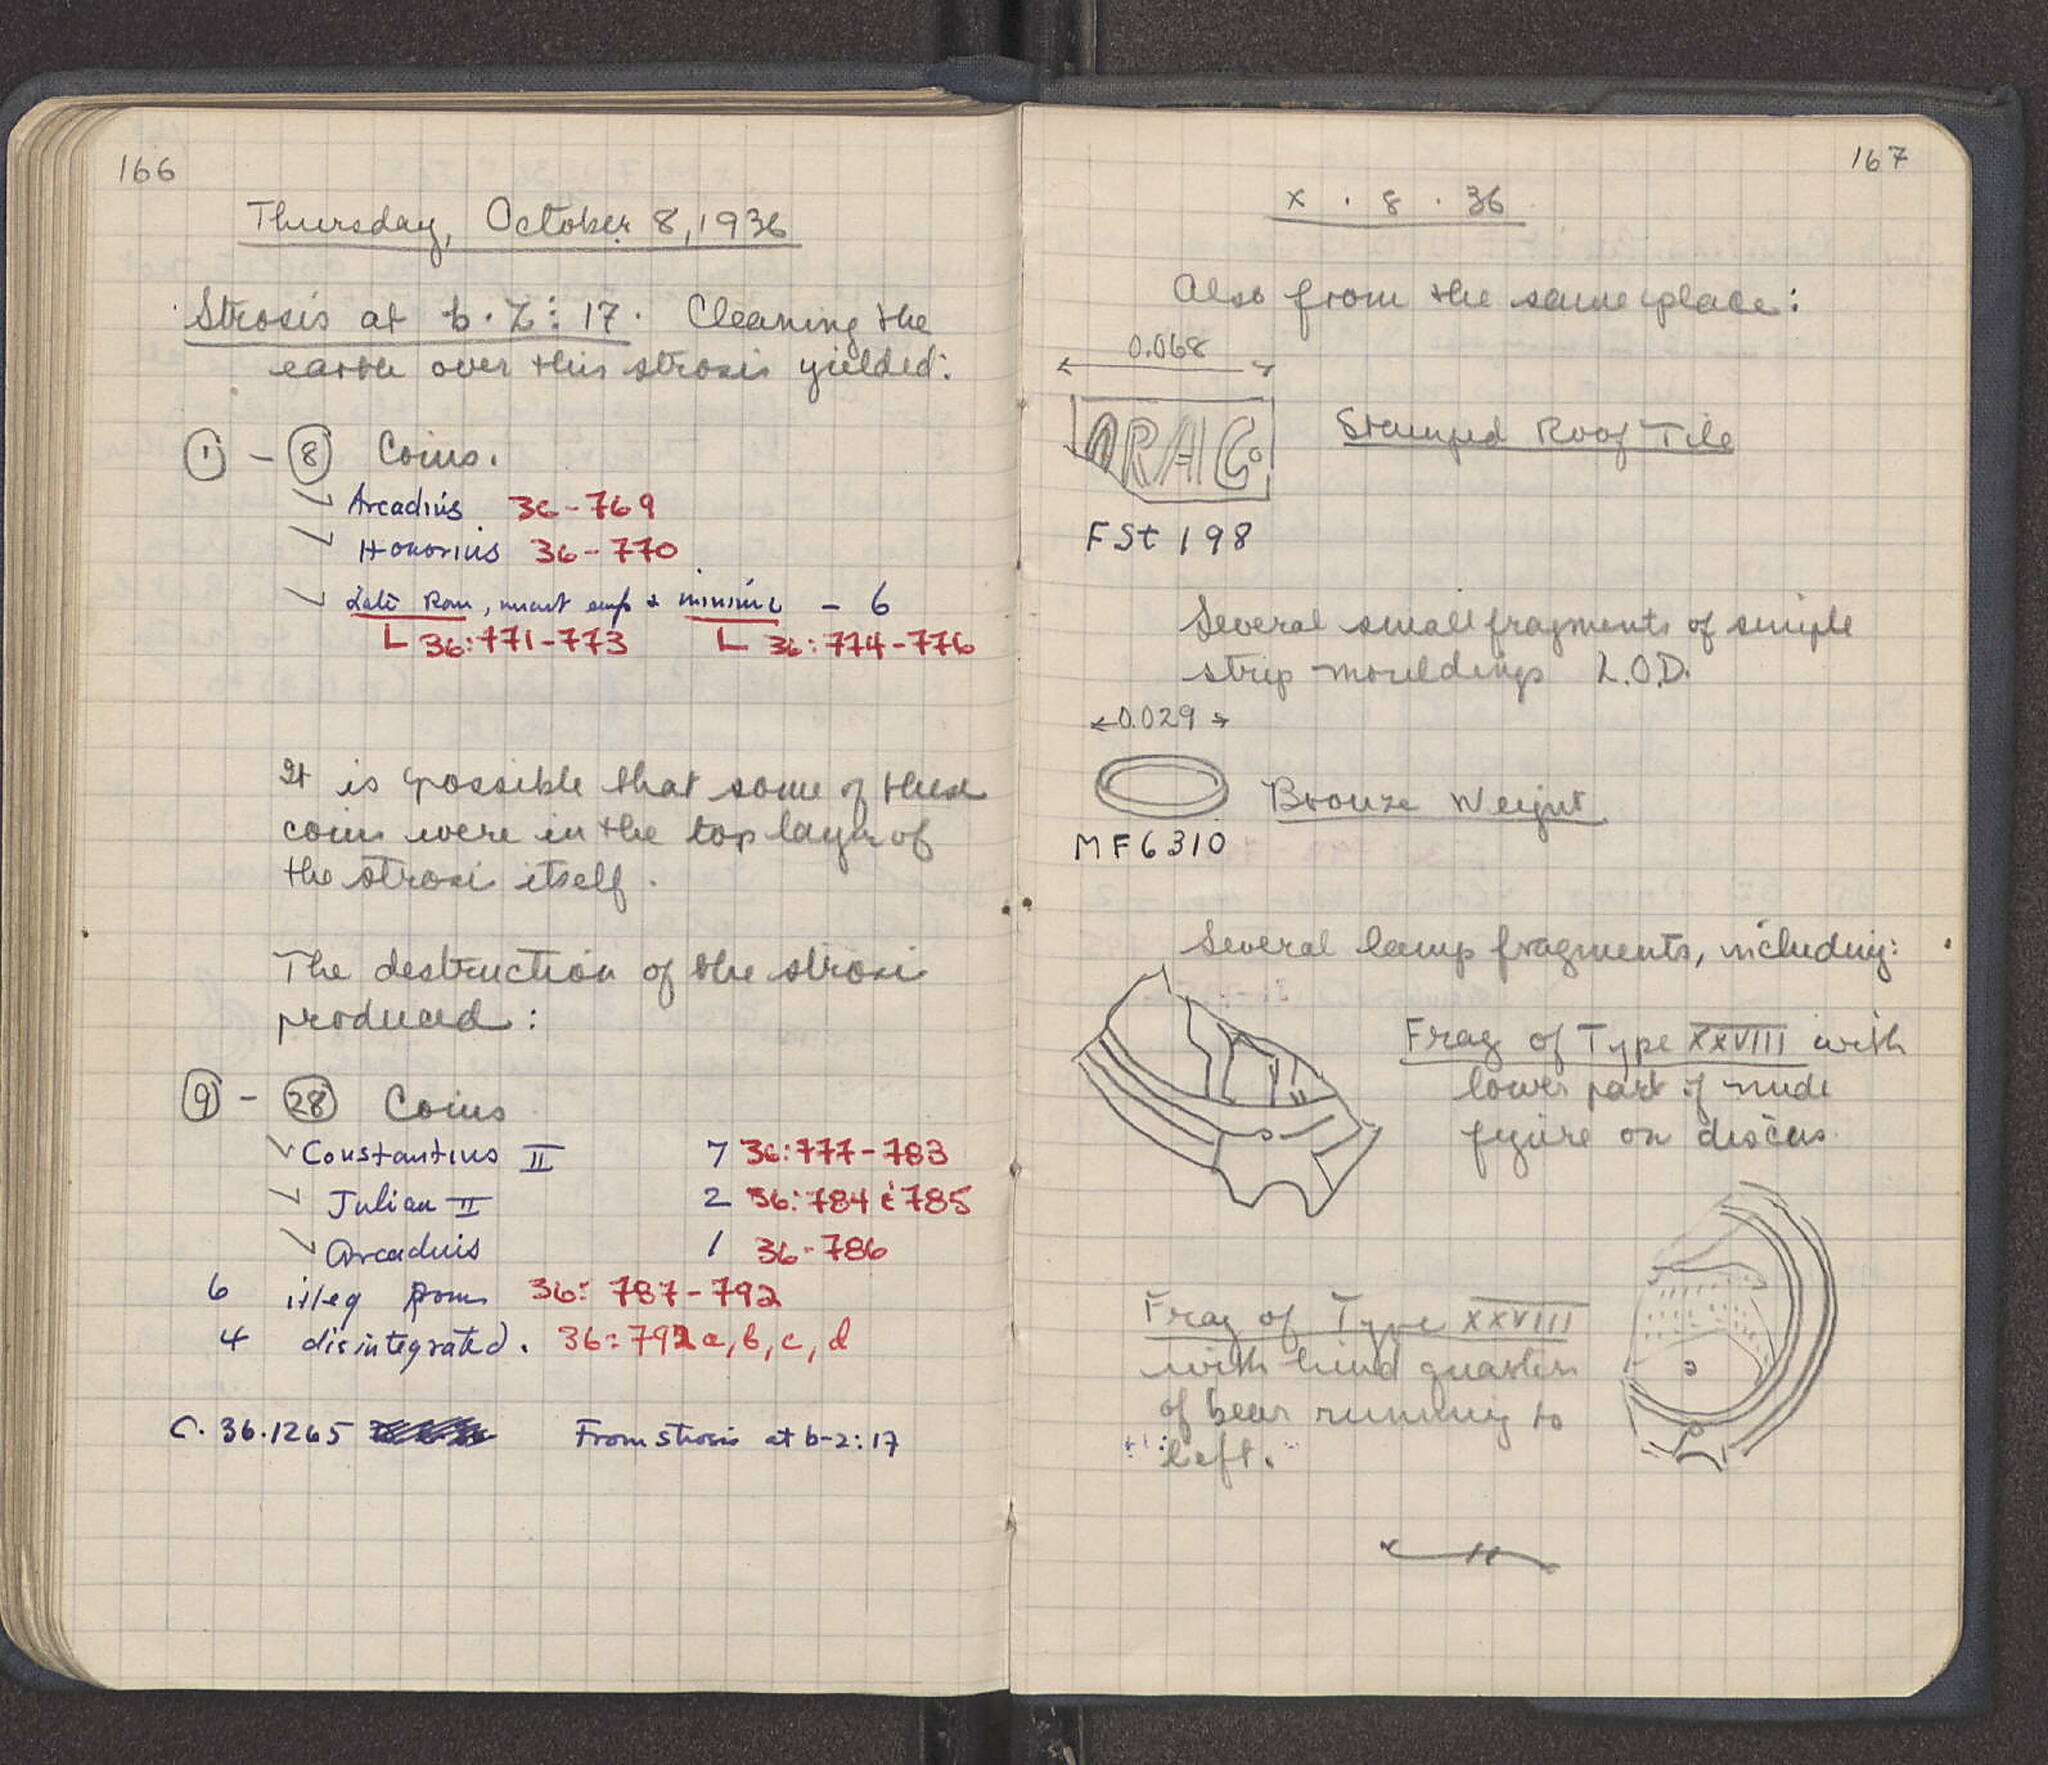 166
Thursday, October 8, 1936
Strosis at b.Z:17. Cleaning the
earth over this strosis yielded:
1 - 8 Coins.
Arcadius 36-769
Honorius 36-770
Late Rom, uncert emp & minimi - 6
36:771-773 36:774-776
It is possible that some of these
coins were in the top layer of
the strosi itself.
The destruction of the strosi
produced:
9 - 28 Coins
Constantius II 7 36:777-783
Julian II 2 36:784 & 785
Arcadius 1 36-786
6 illeg Rom 36: 787-792
4 disintegrated. 36:792 a, b, c, d
C. 36.1265 From strosis at b-z:17
167
X . 8 . 36
Also from the same place:
0.068
ORAC
Stamped Roof Tile
FSt 198
Several small fragments of simple
strip mouldings L.O.D.
0.029
Bronze Weight
MF6310
Several lamp fragments, including:
Frag of Type XXVIII with
lower part of nude
figure on discus.
Frag of Type XXVIII
with hind quarters
of bear running to
left.